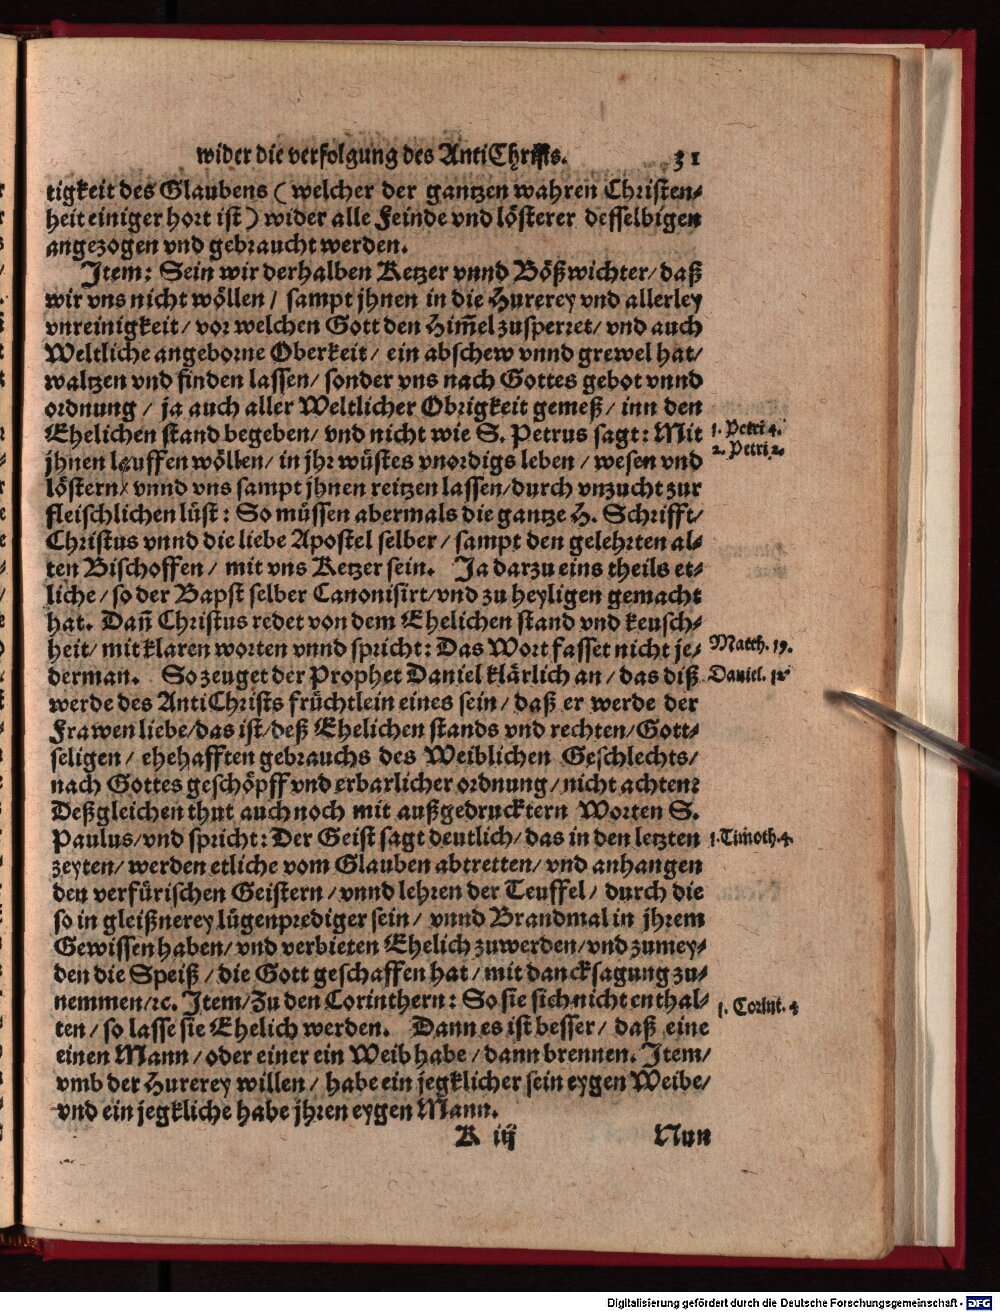 wider die verfolgung des AntiChrists. 31
tigkeit des Glaubens ( welcher der gantzen wahren Christen⸗
heit einiger hort ist ) wider alle Feinde vnd lösterer desselbigen
angezogen vnd gebraucht werden.
Item: Sein wir derhalben Ketzer vnnd Bößwichter/ daß
wir vns nicht wöllen / sampt jhnen in die Hurerey vnd allerley
vnreinigkeit/ vor welchen Gott den Him̄el zusperret/ vnd auch
Weltliche angeborne Oberkeit/ ein abschew vnnd grewel hat/
waltzen vnd finden lassen/ sonder vns nach Gottes gebot vnnd
ordnung / ja auch aller Weltlicher Obrigkeit gemeß/ inn den
Ehelichen stand begeben/ vnd nicht wie S. Petrus sagt: Mit
1. Petri 4.
jhnen lauffen wöllen/ in jhr wüstes vnordigs leben/ wesen vnd
2. Petri 2.
löstern/ vnnd vns sampt jhnen reitzen lassen/ durch vnzucht zur
fleischlichen lüst: So müssen abermals die gantze H. Schrifft/
Christus vnnd die liebe Apostel selber/ sampt den gelehrten al⸗
ten Bischoffen/ mit vns Ketzer sein. Ja darzu eins theils et⸗
liche/ so der Bapst selber Canonisirt/ vnd zu heyligen gemacht
hat. Dan̄ Christus redet von dem Ehelichen stand vnd keusch⸗
heit/ mit klaren worten vnnd spricht: Das Wort fasset nicht je⸗
Matth. 19.
derman. So zeuget der Prophet Daniel klärlich an/ das diß
Daniel. 12
werde des AntiChrists früchtlein eines sein/ daß er werde der
Frawen liebe/ das ist/ deß Ehelichen stands vnd rechten/ Gott⸗
seligen/ ehehafften gebrauchs des Weiblichen Geschlechts/
nach Gottes geschöpff vnd erbarlicher ordnung/ nicht achten:
Deßgleichen thut auch noch mit außgedrucktern Worten S.
Paulus/ vnd spricht: Der Geist sagt deutlich/ das in den letzten
1. Timoth. 4.
zeyten/ werden etliche vom Glauben abtretten/ vnd anhangen
den verfürischen Geistern/ vnnd lehren der Teuffel/ durch die
so in gleißnerey lügenprediger sein/ vnnd Brandmal in jhrem
Gewissen haben/ vnd verbieten Ehelich zuwerden/ vnd zumey⸗
den die Speiß / die Gott geschaffen hat/ mit dancksagung zu⸗
nemmen/ ꝛc. Item/ Zu den Corinthern: So sie sich nicht enthal⸗
1. Corint.
ten/ so lasse sie Ehelich werden. Dann es ist besser/ daß eine
einen Mann/ oder einer ein Weib habe/ dann brennen. Item/
vmb der Hurerey willen/ habe ein jegklicher sein eygen Weibe/
vnd ein jegkliche habe jhren eygen Mann.
K iij Nun
Digitalisierung gefördert durch die Deutsche Forschungsgemeinschaft - DFG